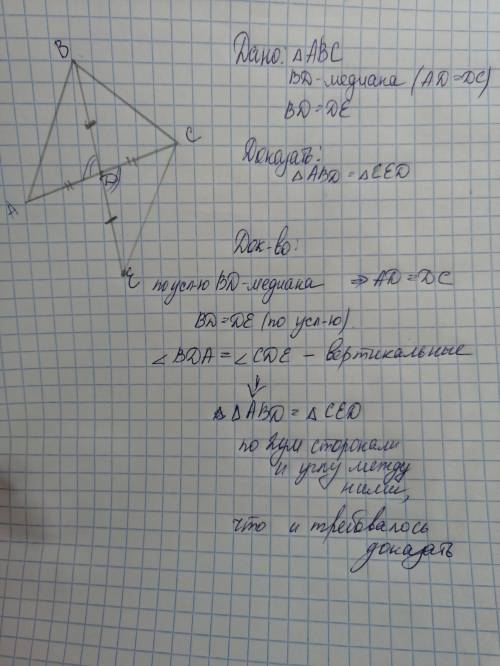 B
C
D
A
E
Дано: △ABC
BD-медиана (AD=DC)
BD=DE
Доказать:
△ABD=△CED
Док-во:
по усл-ю BD-медиана ⇒ AD=DC
BD=DE (по усл-ю)
∠BDA=∠CDE - вертикальные
△ABD=△CED
по 2ум сторонами
и углу между
ними,
что и требовалось
доказать